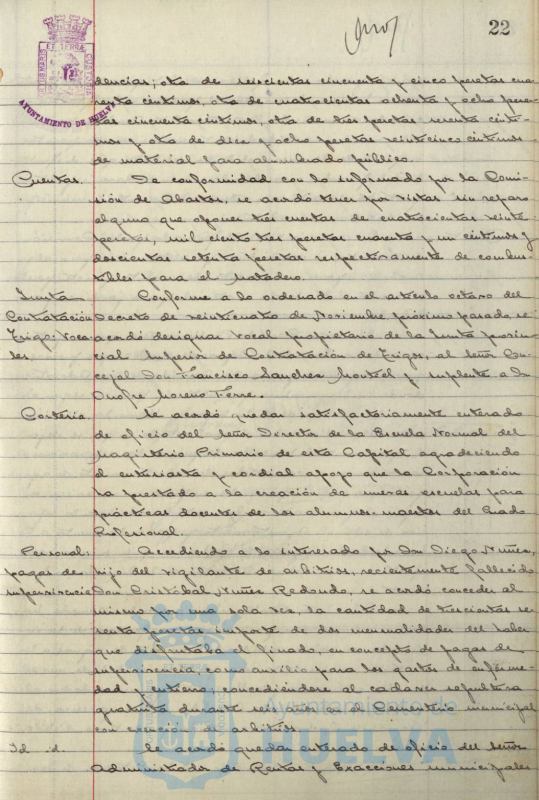 22
AYUNTAMIENTO DE HUELVA
dencias; otra de seiscientas cincuenta y cinco pesetas cua-
renta céntimos, otra de cuatrocientas ochenta y ocho pese-
tas cincuenta céntimos, otra de tres pesetas sesenta cénti-
mos y otra de diez y ocho pesetas veinticinco céntimos
de material para alumbrado público.
Cuentas. De conformidad con lo informado por la Comi-
sión de Abastos, se acordó tener por vistas sin reparo
alguno que oponer tres cuentas de cuatrocientas veinte
pesetas, mil ciento tres pesetas cuarenta y un céntimos y
doscientas setenta pesetas respectivamente de combus-
tibles para el Matadero.
Junta Conforme a lo ordenado en el artículo octavo del
Contratación Decreto de veinticuatro de Noviembre próximo pasado, se
Trigo: Voca- acordó designar Vocal propietario de la Junta provin-
les. cial Superior de Contratación de Trigos, al Señor Con-
cejal Don Francisco Sanchez Montiel y suplente a Don
Onofre Moreno Ferre.
Cortesía. Se acordó quedar satisfactoriamente enterado
de oficio del Señor Director de la Escuela Normal del
Magisterio Primario de esta Capital agradeciendo
el entusiasta y cordial apoyo que la Corporación
ha prestado a la creación de nuevas escuelas para
prácticas docentes de los alumnos-maestros del Grado
Profesional.
Personal: Accediendo a lo interesado por Don Diego Nuñez,
pagas de hijo del vigilante de arbitrios, recientemente fallecido
supervivencia Don Cristóbal Nuñez Redondo, se acordó conceder al
mismo por una sola vez, la cantidad de trescientas se-
senta pesetas importe de dos mensualidades del haber
que disfrutaba el finado, en concepto de pagas de
supervivencia, como auxilio para los gastos de enferme-
dad y entierro, concediéndose al cadaver sepultura
gratuita durante seis años en el Cementerio municipal
con exención de arbitrios.
Id. id. Se acordó quedar enterado de oficio del Señor
Administrador de Rentas y Exacciones municipales
Ayuntamiento de
HUELVA